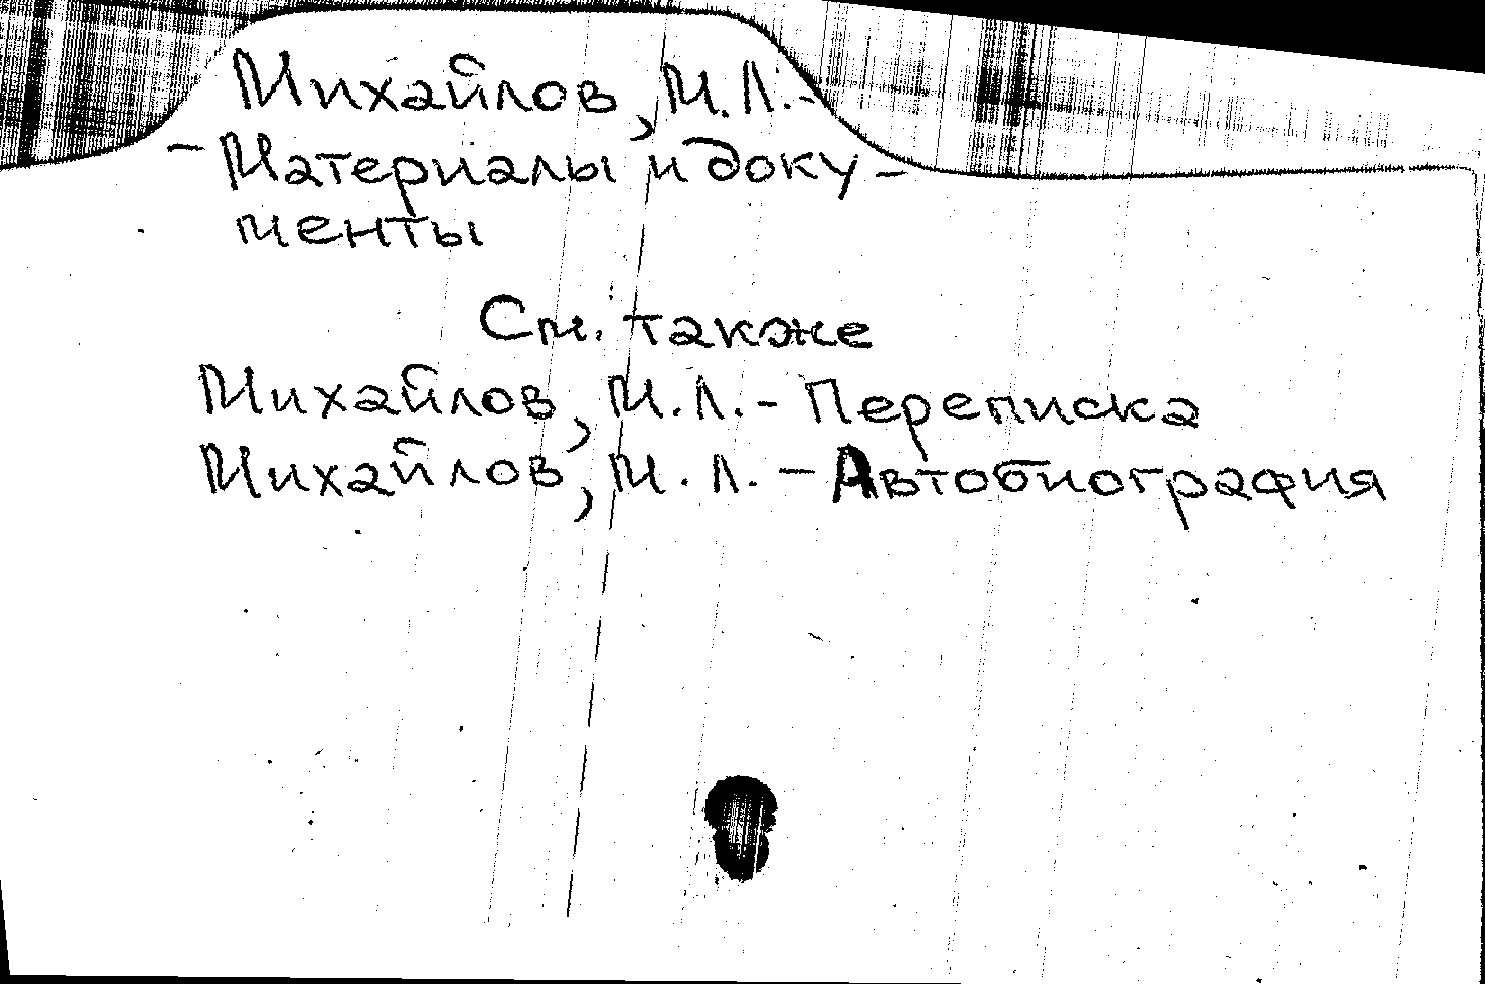 Михайлов, М.Л.-
- Материалы и доку-
менты
См. также
Михайлов, М.Л.- Переписка
Михайлов, М.Л. - Автобиография